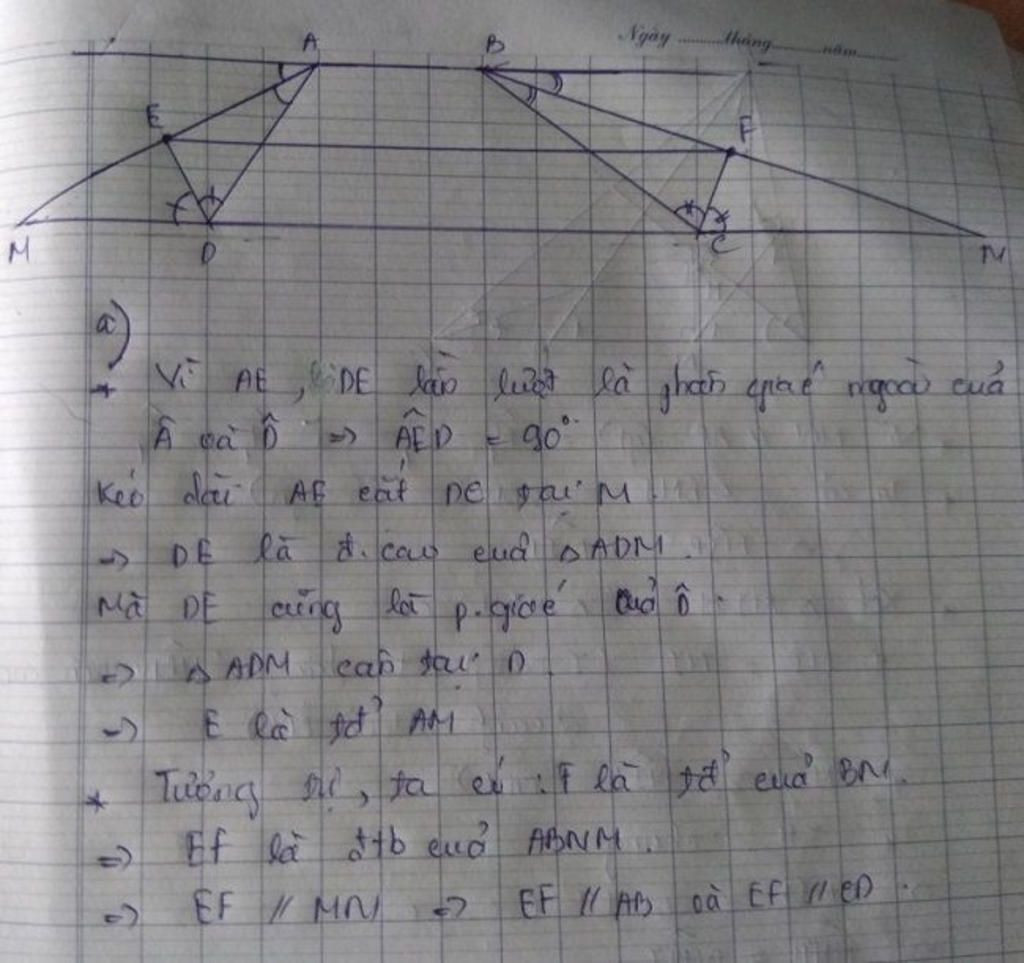 Ngày ............tháng............năm............
A B
E F
M D C N
a)
* Vì AE, DE lần lượt là phân giác ngoài của
Â và D̂ => AÊD = 90°
Kéo dài AE cắt DC tại M.
=> DE là đ. cao của △ADM.
Mà DE cũng là p. giác của D̂.
=> △ADM cân tại D.
=> E là tđ AM
* Tương tự, ta có : F là tđ của BN.
=> EF là đtb của ABNM.
=> EF // MN => EF // AB và EF // CD.